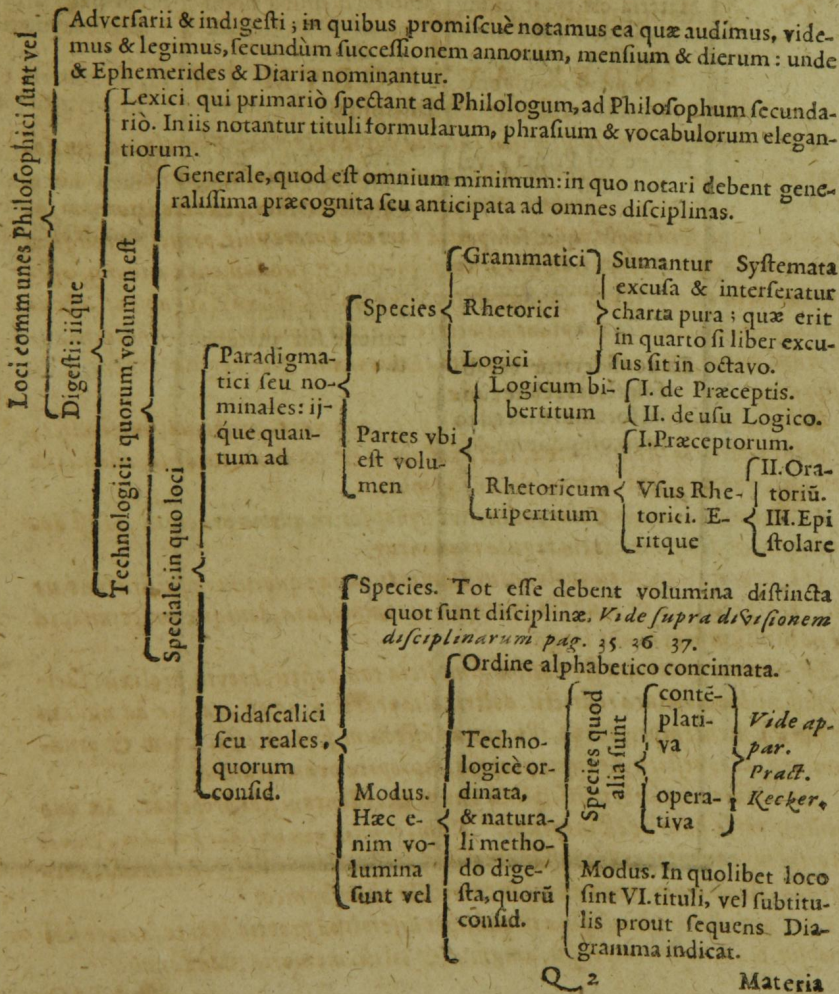 Loci communes Philoſophici ſunt vel
Adverſarii & indigeſti; in quibus promiſcuè notamus ea quæ audimus, vide-
mus & legimus, ſecundùm ſucceſſionem annorum, menſium & dierum: unde
& Ephemerides & Diaria nominantur.
Digeſti: iique
Lexici qui primariò ſpectant ad Philologum, ad Philoſophum ſecunda-
riò. In iis notantur tituli formularum, phraſium & vocabulorum elegan-
tiorum.
Technologici: quorum volumen eſt
Generale, quod eſt omnium minimum: in quo notari debent gene-
raliſſima præcognita ſeu anticipata ad omnes diſciplinas.
Speciale: in quo loci
Paradigma-
tici ſeu no-
minales: ij-
que quan-
tum ad
Species
Grammatici
Rhetorici
Logici
Sumantur Syſtemata
excuſa & interſeratur
charta pura; quæ erit
in quarto ſi liber excu-
ſus ſit in octavo.
Partes vbi
eſt volu-
men
Logicum bi-
bertitum
I. de Præceptis.
II. de uſu Logico.
Rhetoricum
tripertitum
I. Præceptorum.
Vſus Rhe-
torici. E-
ritque
II. Ora-
toriū.
III. Epi
ſtolare
Didaſcalici
ſeu reales,
quorum
conſid.
Species. Tot eſſe debent volumina diſtincta
quot ſunt diſciplinæ. Vide ſupra diviſionem
diſciplinarum pag. 35 36 37.
Modus.
Hæc e-
nim vo-
lumina
ſunt vel
Ordine alphabetico concinnata.
Techno-
logicè or-
dinata,
& natura-
li metho-
do dige-
ſta, quorū
conſid.
Species quod
alia ſunt
contē-
plati-
va
opera-
tiva
Vide ap-
par.
Pract.
Kecker.
Modus. In quolibet loco
ſint VI. tituli, vel ſubtitu-
lis prout ſequens Dia-
gramma indicat.
Q 2 Materia